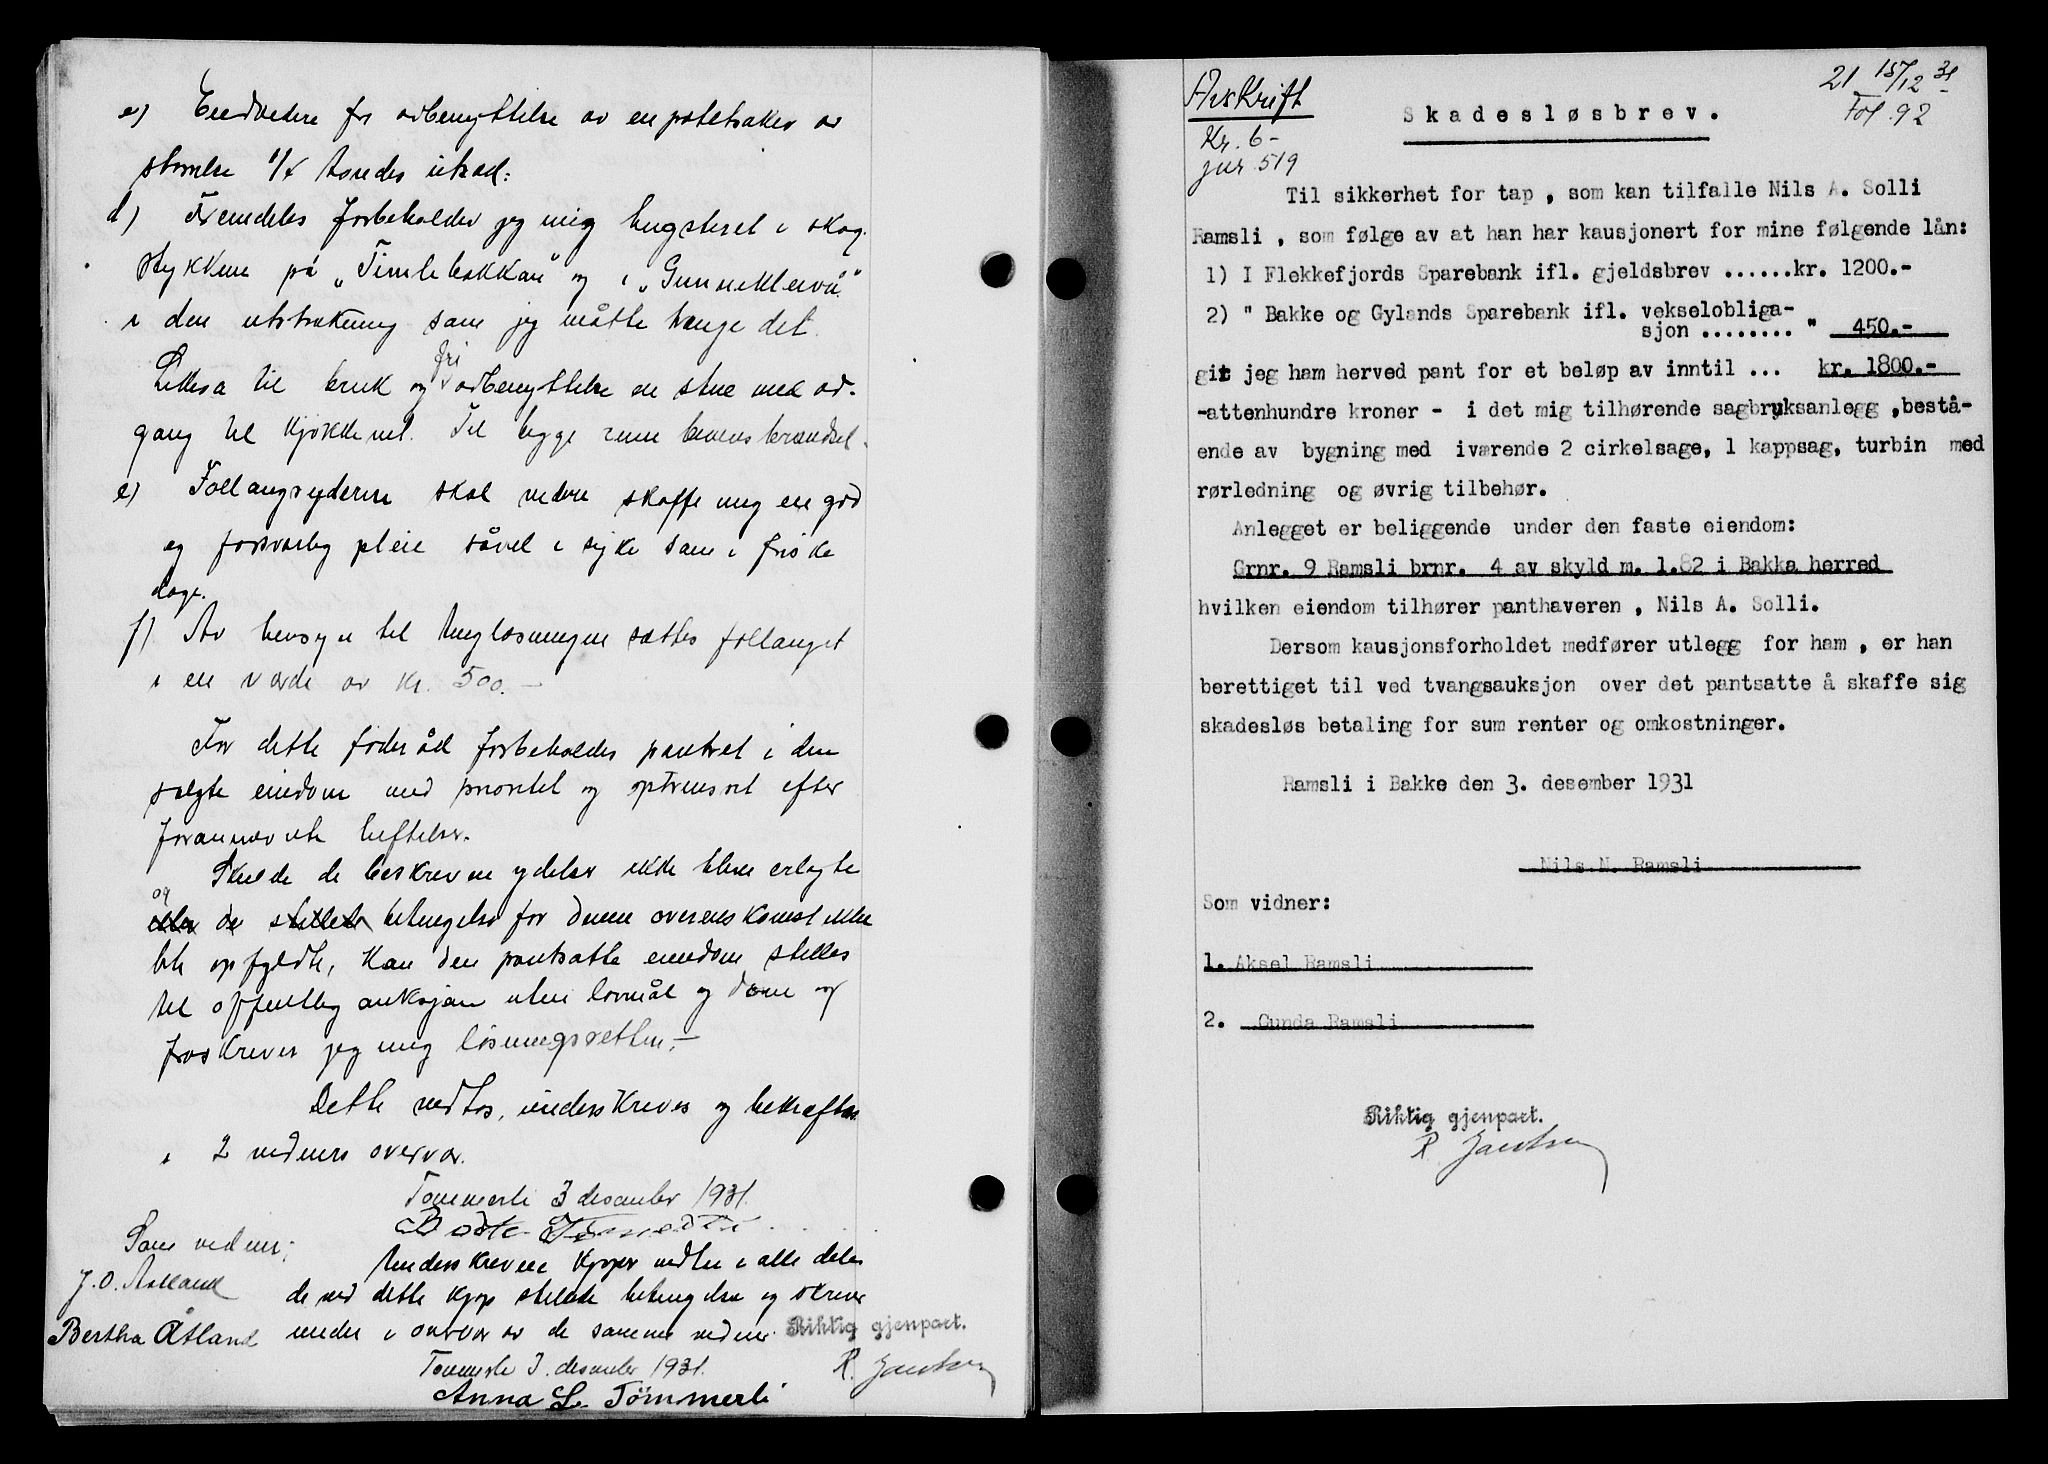 c) Endvidere fri avbenyttelse av en potetaker av
størrelse 1/4 tøndes utsæd:
d) Fremdeles forbeholder jeg mig hugstret i skog-
stykkene på „Timlebakkan" og i „Gunnekleivå"
i den utstrækning som jeg måtte trænge det.
Likesa til bruk og fri avbenyttelse en stue med ad-
gang til kjøkkenet. Til begge rum leveres brændsel.
e) Follaugsyderen skal videre skaffe mig en god
og forsvarlig pleie såvel i syke som i friske
dage.
f) Av hensyn til tinglæsningen sættes follauget
i en værdi av kr. 500.-
For dette føderåd forbeholdes pantret i den
solgte eiendom med prioritet og optrinsret efter
forannævnte heftelser.
Skulde de beskrevne ydelser ikke blive erlagte
og
eller de stillete betingelser for denne overenskomst ikke
bli opfyldte, kan den pantsatte eiendom stilles
til offentlig auksjon uten lovmål og dom og
fraskriver jeg mig løsningsretten.-
Dette vedtas, underskrives og bekræftes
i 2 vidners overvær.
Tømmerli 3 desember 1931.
Underskrevne kjøper vedtar i alle dele
Som vidner;
J. O. Åtland
de ved dette kjøp stillede betingelser og skriver
Bertha Åtland under i overvær av de samme vidner. Riktig gjenpart.
Tømmerli 3. desember 1931. R. Jacobsen
Anna L. Tömmerli
Avskrift
Kr. 6-
jur 519
21 15/12 31
Fol. 92
Skadesløsbrev.
Til sikkerhet for tap , som kan tilfalle Nils A. Solli
Ramsli , som følge av at han har kausjonert for mine følgende lån:
1) I Flekkefjords Sparebank ifl. gjeldsbrev ......kr. 1200.-
2) " Bakke og Gylands Sparebank ifl. vekselobliga-
sjon ........ " 450.-
gir jeg ham herved pant for et beløp av inntil ... kr. 1800.-
-attenhundre kroner - i det mig tilhørende sagbruksanlegg ,bestå-
ende av bygning med iværende 2 cirkelsage, 1 kappsag, turbin med
rørledning og øvrig tilbehør.
Anlegget er beliggende under den faste eiendom:
Grnr. 9 Ramsli brnr. 4 av skyld m. 1.82 i Bakke herred
hvilken eiendom tilhører panthaveren , Nils A. Solli.
Dersom kausjonsforholdet medfører utlegg for ham , er han
berettiget til ved tvangsauksjon over det pantsatte å skaffe sig
skadesløs betaling for sum renter og omkostninger.
Ramsli i Bakke den 3. desember 1931
Nils N. Ramsli
Som vidner:
1. Aksel Ramsli
2. Gunda Ramsli
Riktig gjenpart.
R. Jacobsen